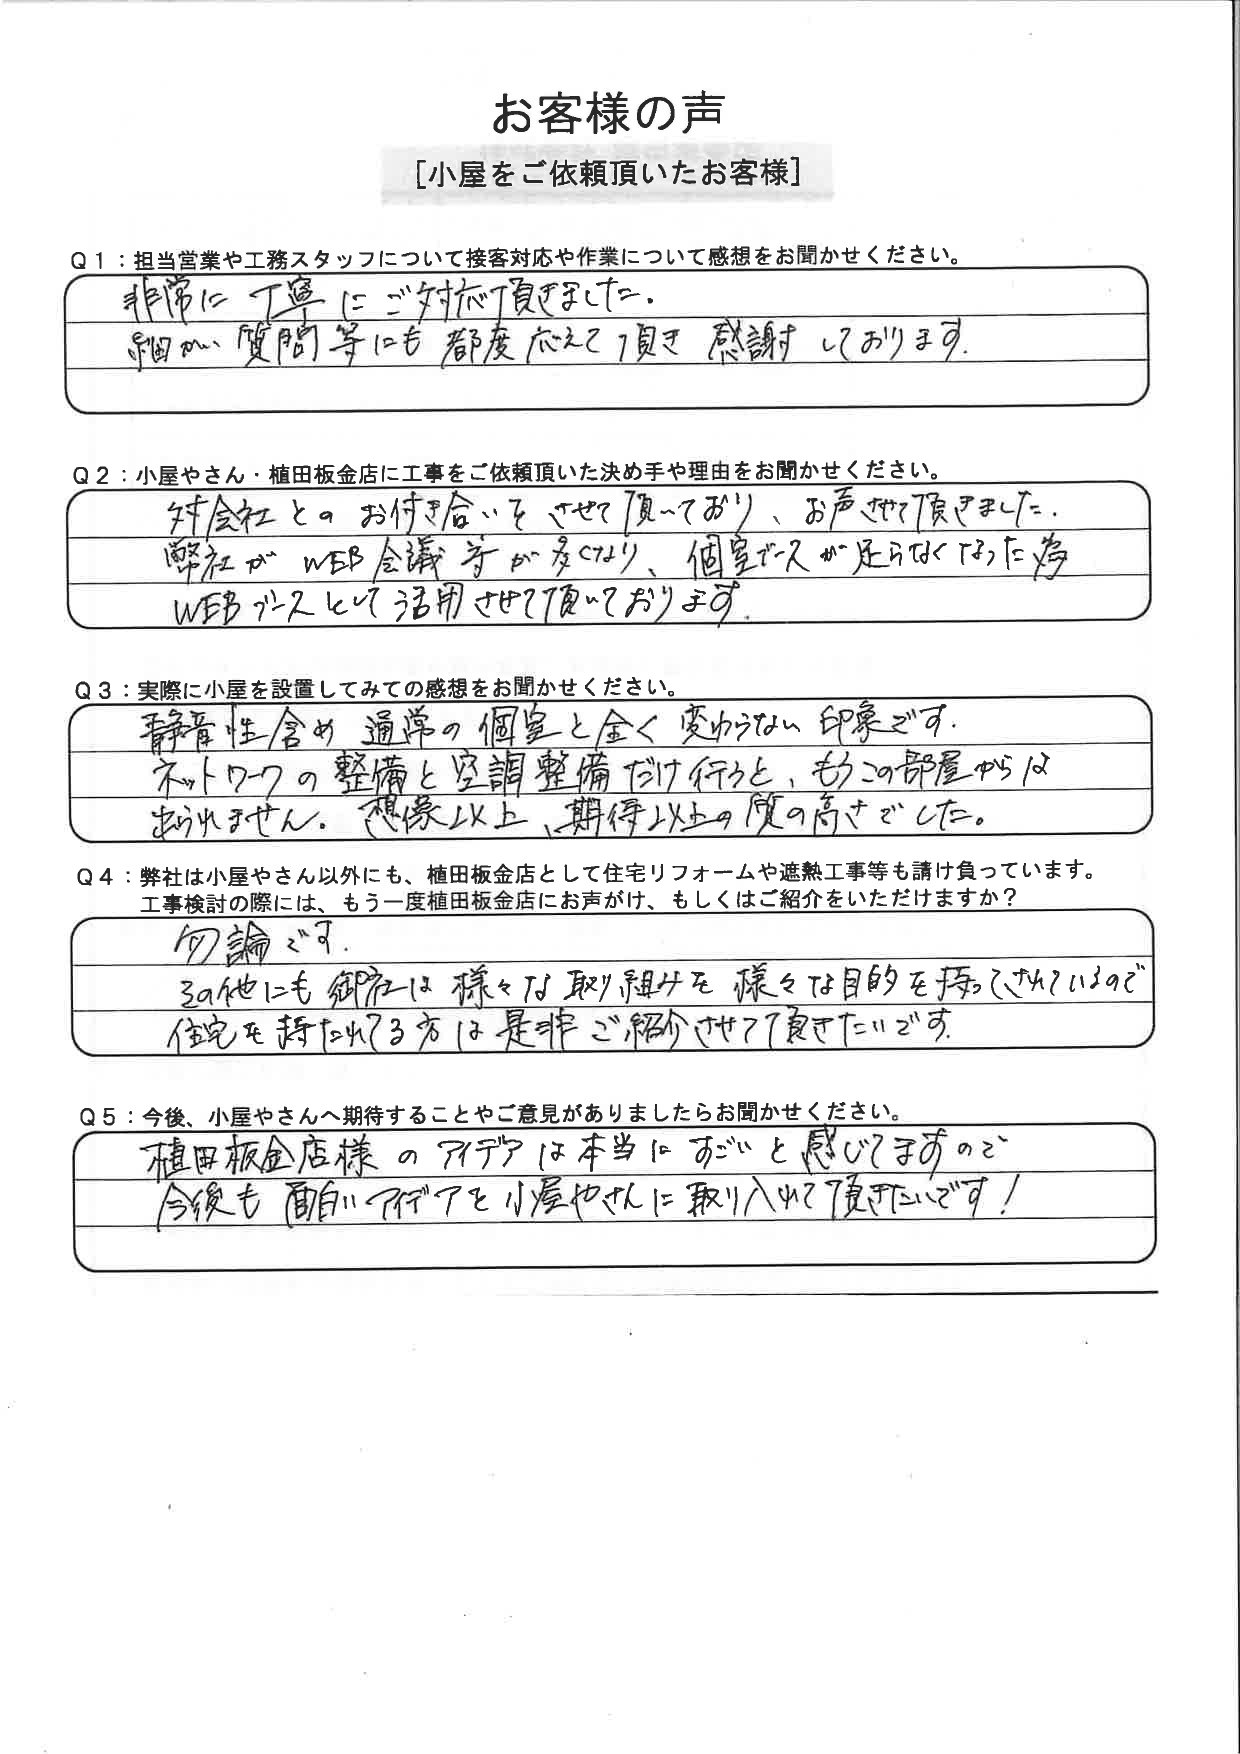 お客様の声
[小屋をご依頼頂いたお客様]
Q1：担当営業や工務スタッフについて接客対応や作業について感想をお聞かせください。
非常に丁寧にご対応頂きました。
細かい質問等にも都度応えて頂き感謝しております。
Q2：小屋やさん・植田板金店に工事をご依頼頂いた決め手や理由をお聞かせください。
対会社とのお付き合いをさせて頂いており、お声させて頂きました。
弊社がWEB会議等が多くなり、個室ブースが足らなくなった為
WEBブースとして活用させて頂いております。
Q3：実際に小屋を設置してみての感想をお聞かせください。
静音性含め通常の個室と全く変わらない印象です。
ネットワークの整備と空調整備だけ行うと、もうこの部屋からは
出られません。想像以上、期待以上の質の高さでした。
Q4：弊社は小屋やさん以外にも、植田板金店として住宅リフォームや遮熱工事等も請け負っています。
工事検討の際には、もう一度植田板金店にお声がけ、もしくはご紹介をいただけますか？
勿論です。
その他にも御社は様々な取り組みを様々な目的を持ってされているので
住宅を持たれてる方は是非ご紹介させて頂きたいです。
Q5：今後、小屋やさんへ期待することやご意見がありましたらお聞かせください。
植田板金店様のアイデアは本当にすごいと感じてますので
今後も面白いアイデアを小屋やさんに取り入れて頂きたいです！